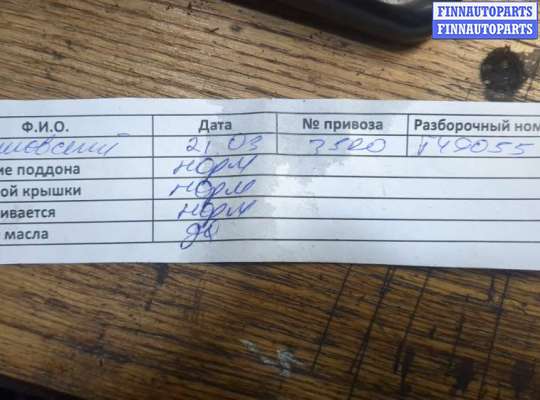 FINNAUTOPARTS
FINNAUTOPARTS
Ф.И.О. Дата № привоза Разборочный ном
21.03 3500 149055
ие поддона норм
ой крышки норм
ивается норм
масла да